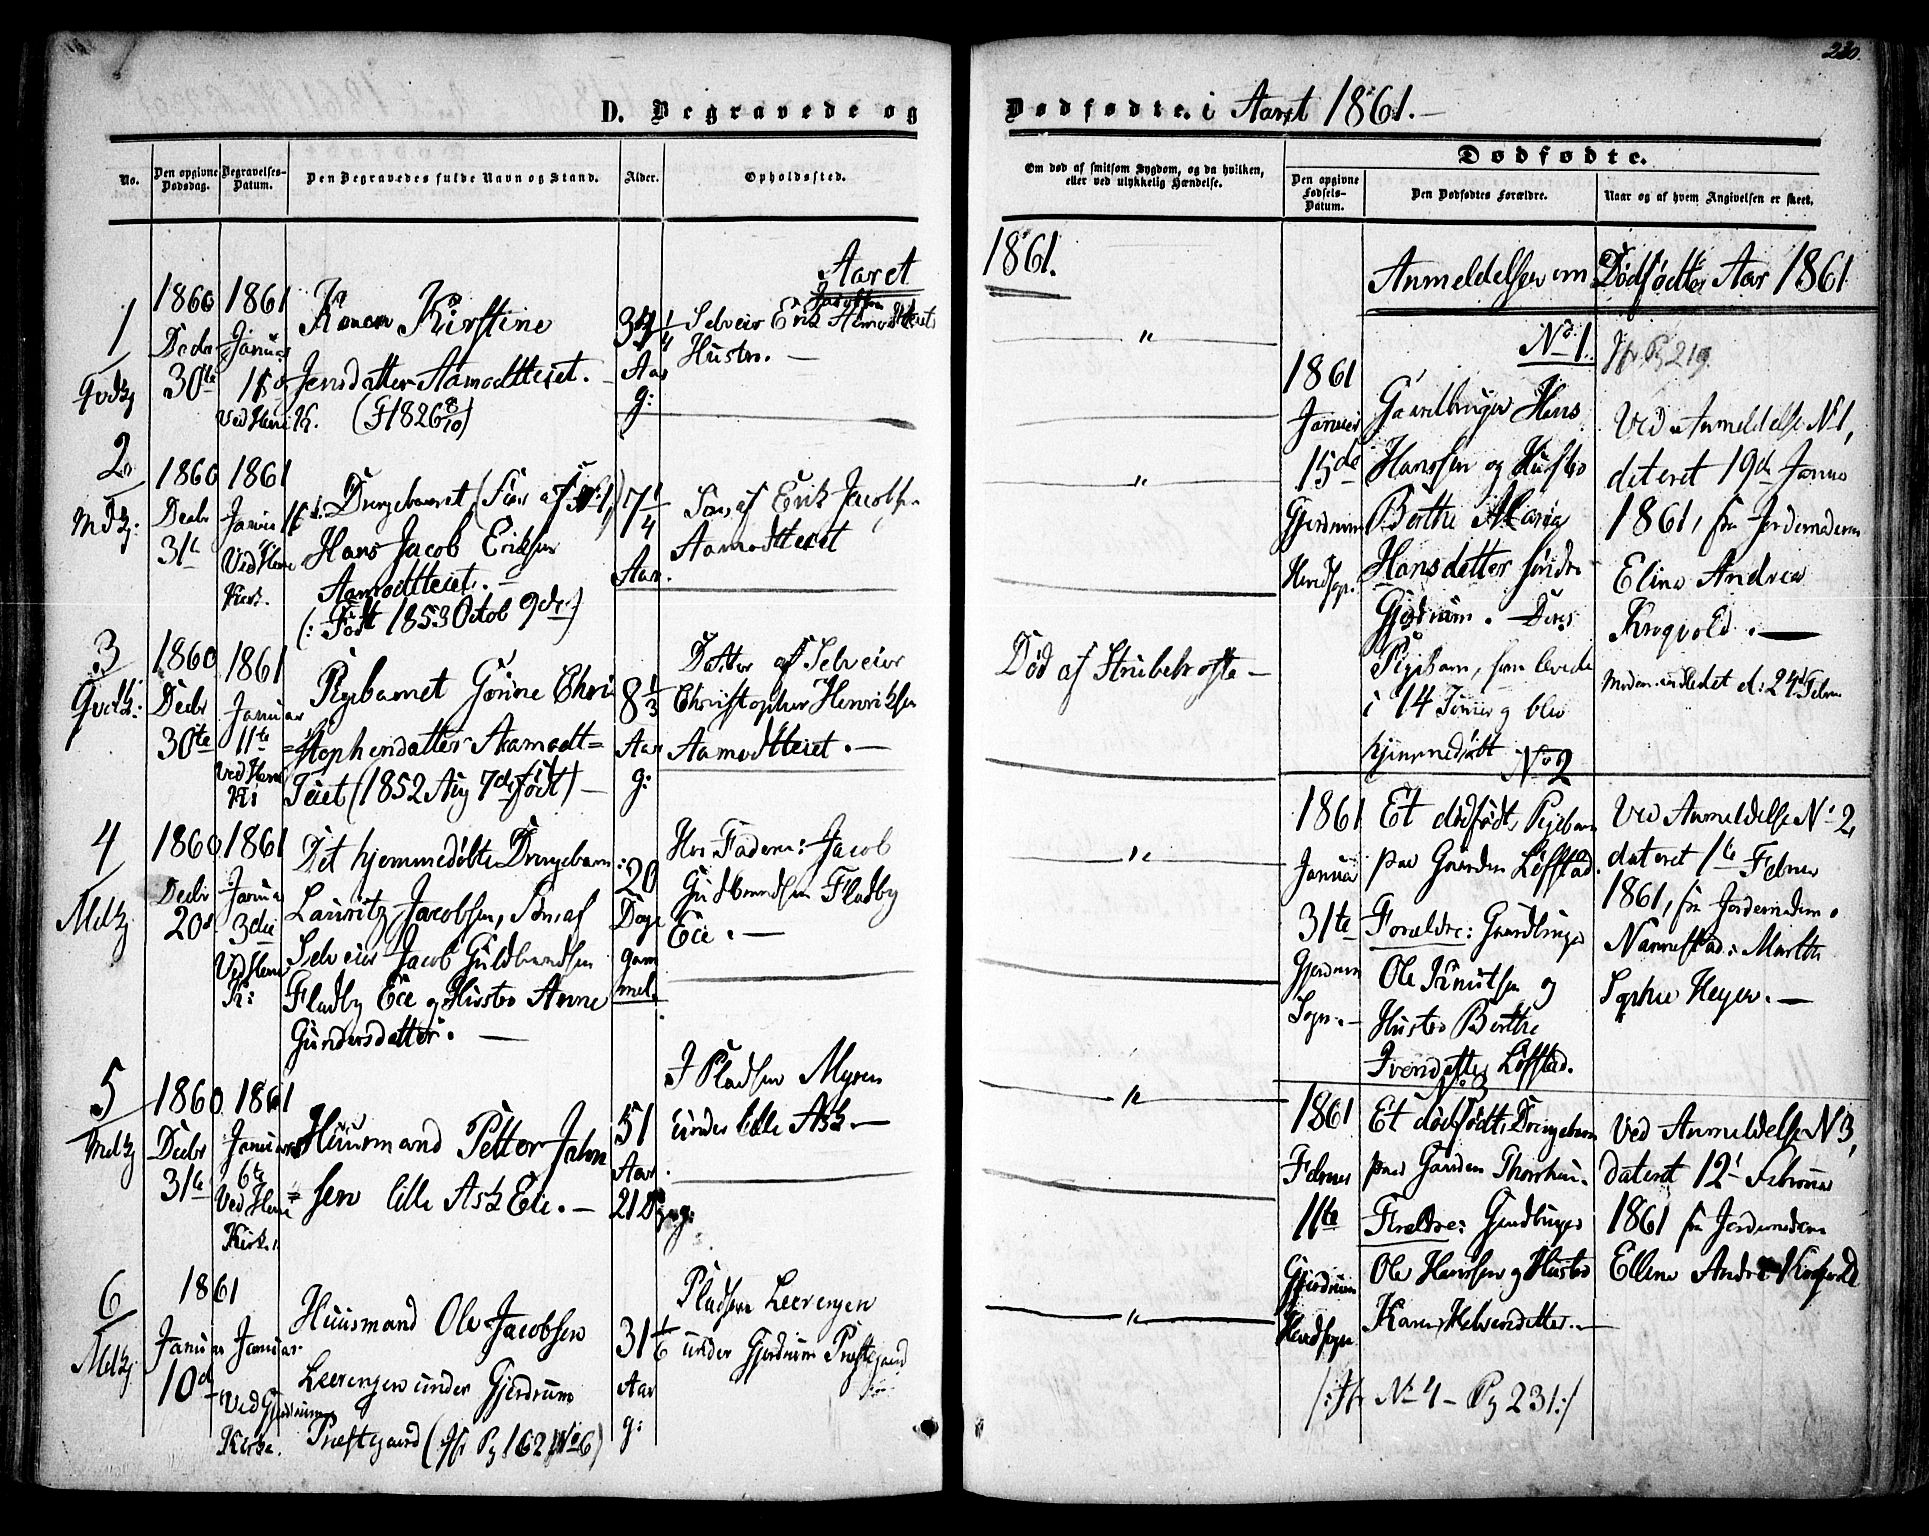 230.
D. Begravede og
Dødfødte. i Aaret 1861.-
No.
Den opgivne Dødsdag.
Begravelses-Datum.
Den Begravedes fulde Navn og Stand.
Alder.
Opholdssted.
Om død af smitsom Sygdom, og da hvilken,
eller ved ulykkelig Hændelse.
Dødfødte.
Den opgivne Fødsels-Datum.
Den Dødfødtes Forældre.
Naar og af hvem Angivelsen er skeet.
Aaret
1861.
1
1860
Decbr
30te
1861
Januar
Ved Heni K.
Konen Kirstine
Jensdatter Aamodtteiet.
(F 1826 8/10)
34 1/4
Aar
g:
Selveier Erik Jacobsen Aamodtteiets
Hustro. —
"
2
1860
Decbr
31te
1861
Januar
Ved Heni
Kirk.
Drengebarnet, (Søn af No 1,)
Hans Jacob Eriksen
Aamodtteiet. —
(: Født 1853 Octob 9de:)
7 1/4
Aar.
Søn af Erik Jacobsen
Aamodtteiet
"
3
1860
Decbr
30te
1861
Januar
11te
Ved Heni
Ki
Pigebarnet Gorine Chri
=stophersdatter Aamodt=
Teiet (1852 Aug 7de født) —
8 1/3
Aar
g:
Datter af Selveier
Christopher Henriksen
Aamodtteiet. —
Død af Strubehoste —
4
1860
Decbr
20de
1861
Januar
3die
Ved Heni
K:
Det hjemmedøbte Drengebarn
Lauritz Jacobsen, Søn af
Selveier Jacob Guldbrandsen
Fladby Eie og Hustro Anne
Gundersdatter. —
20
Dage
gam
mel.
Hos Faderen: Jacob
Guldbrandsen Fladby
Eie. —
"
5
1860
Decbr
31te
1861
Januar
6te
Ved Heni
Kirk.
Huusmand Petter John
=sen lille Ask Eie. —
51
Aar
21 D
g:
I Pladsen Myren
under lille Ask —
"
6
1861
Januar
10de
Januar
Ved Gjerdrums
Kirke.
Huusmand Ole Jacobsen
Leerengen under Gjerdrums
Præstegaard (Jfr Pg 162 No 6)
31 1/6
Aar
g:
Pladsen Leerengen
under Gjerdrum Præstegaard
"
Anmeldelser om Dødfødte, Aar 1861
No 1.
Jfr Pg 219.
1861
Januar
15de
Gjerdrum
Hovedsogn.
Gaardbruger Hans
Hanssen og Hustro
Berthe Maria
Hansdatter søndre
Gjerdrum. — Deres
Pigebarn, som levede
i 14 Timer og blev
hjemmedøbt
Ved Anmeldelse No 1,
dateret 19de Januar
1861, fra Jordemoderen
Elina Andrea
Krogvold. —
No 2
1861
Januar
31te
Gjerdrum
Sogn. —
Et dødfødt Pigebarn
paa Gaarden Løfstad.
Forældre: Gaardbruger
Ole Knutsen og
Hustro Berthe
Iversdatter Løfstad.
Ved Anmeldelse No 2,
dateret 1te Februar
1861, fra Jordemoderen
Nannestad: Marthe
Sophie Heyer. —
1861
Februar
11te
Gjerdrum
Hovedsogn
No 3
Et dødfødt Drengebarn
paa Gaarden
Forældre: Gaardbruger
Ole Hanssen og Hustro
Karen Helvensdatter. —
Ved Anmeldelse N 3,
dateret 12te Februar
1861 fra Jordemoderen
Ellena Andrea Krogvold
/: Jfr No 4 — Pg 231 :/